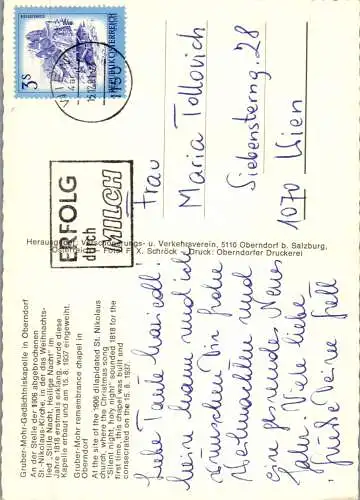 3s
REPUBLIK ÖSTERREICH
1150
ERFOLG
durch
MILCH
Frau
Maria Tollovich
Siebensterng. 28
1070 Wien
Herausgeber: Verschönerungs- u. Verkehrsverein, 5110 Oberndorf b. Salzburg,
Österreich — Foto: F. X. Schröck — Druck: Oberndorfer Druckerei
Gruber-Mohr-Gedächtniskapelle in Oberndorf
An der Stelle der 1906 abgebrochenen
St.-Nikolaus-Kirche, in der das Weihnachts-
lied „Stille Nacht, Heilige Nacht" im
Jahre 1818 erstmals erklang, wurde diese
Kapelle erbaut und am 15. 8. 1937 eingeweiht.
Gruber-Mohr remembrance chapel in
Oberndorf
At the site of the 1906 dilapidated St. Nikolaus
church, where the Christmas song
"Silent night, holy night" sounded 1818 for the
first time, this chapel was build and
consecrated on the 15. 8. 1937.
Liebe Tante
Mein Mann und ich
wünschen Dir frohe
Weihnachten und
Ein gesundes Neues
Jahr. Viele liebe
Grüße Deine
1